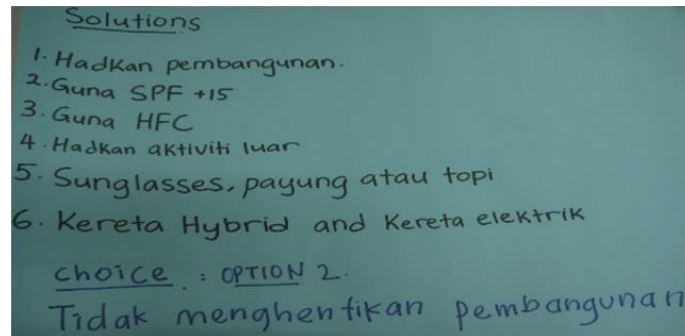 Solutions
1. Hadkan pembangunan.
2. Guna SPF +15
3. Guna HFC
4. Hadkan aktiviti luar
5. Sunglasses, payung atau topi
6. Kereta Hybrid and Kereta elektrik
choice : OPTION 2.
Tidak menghentikan pembangunan